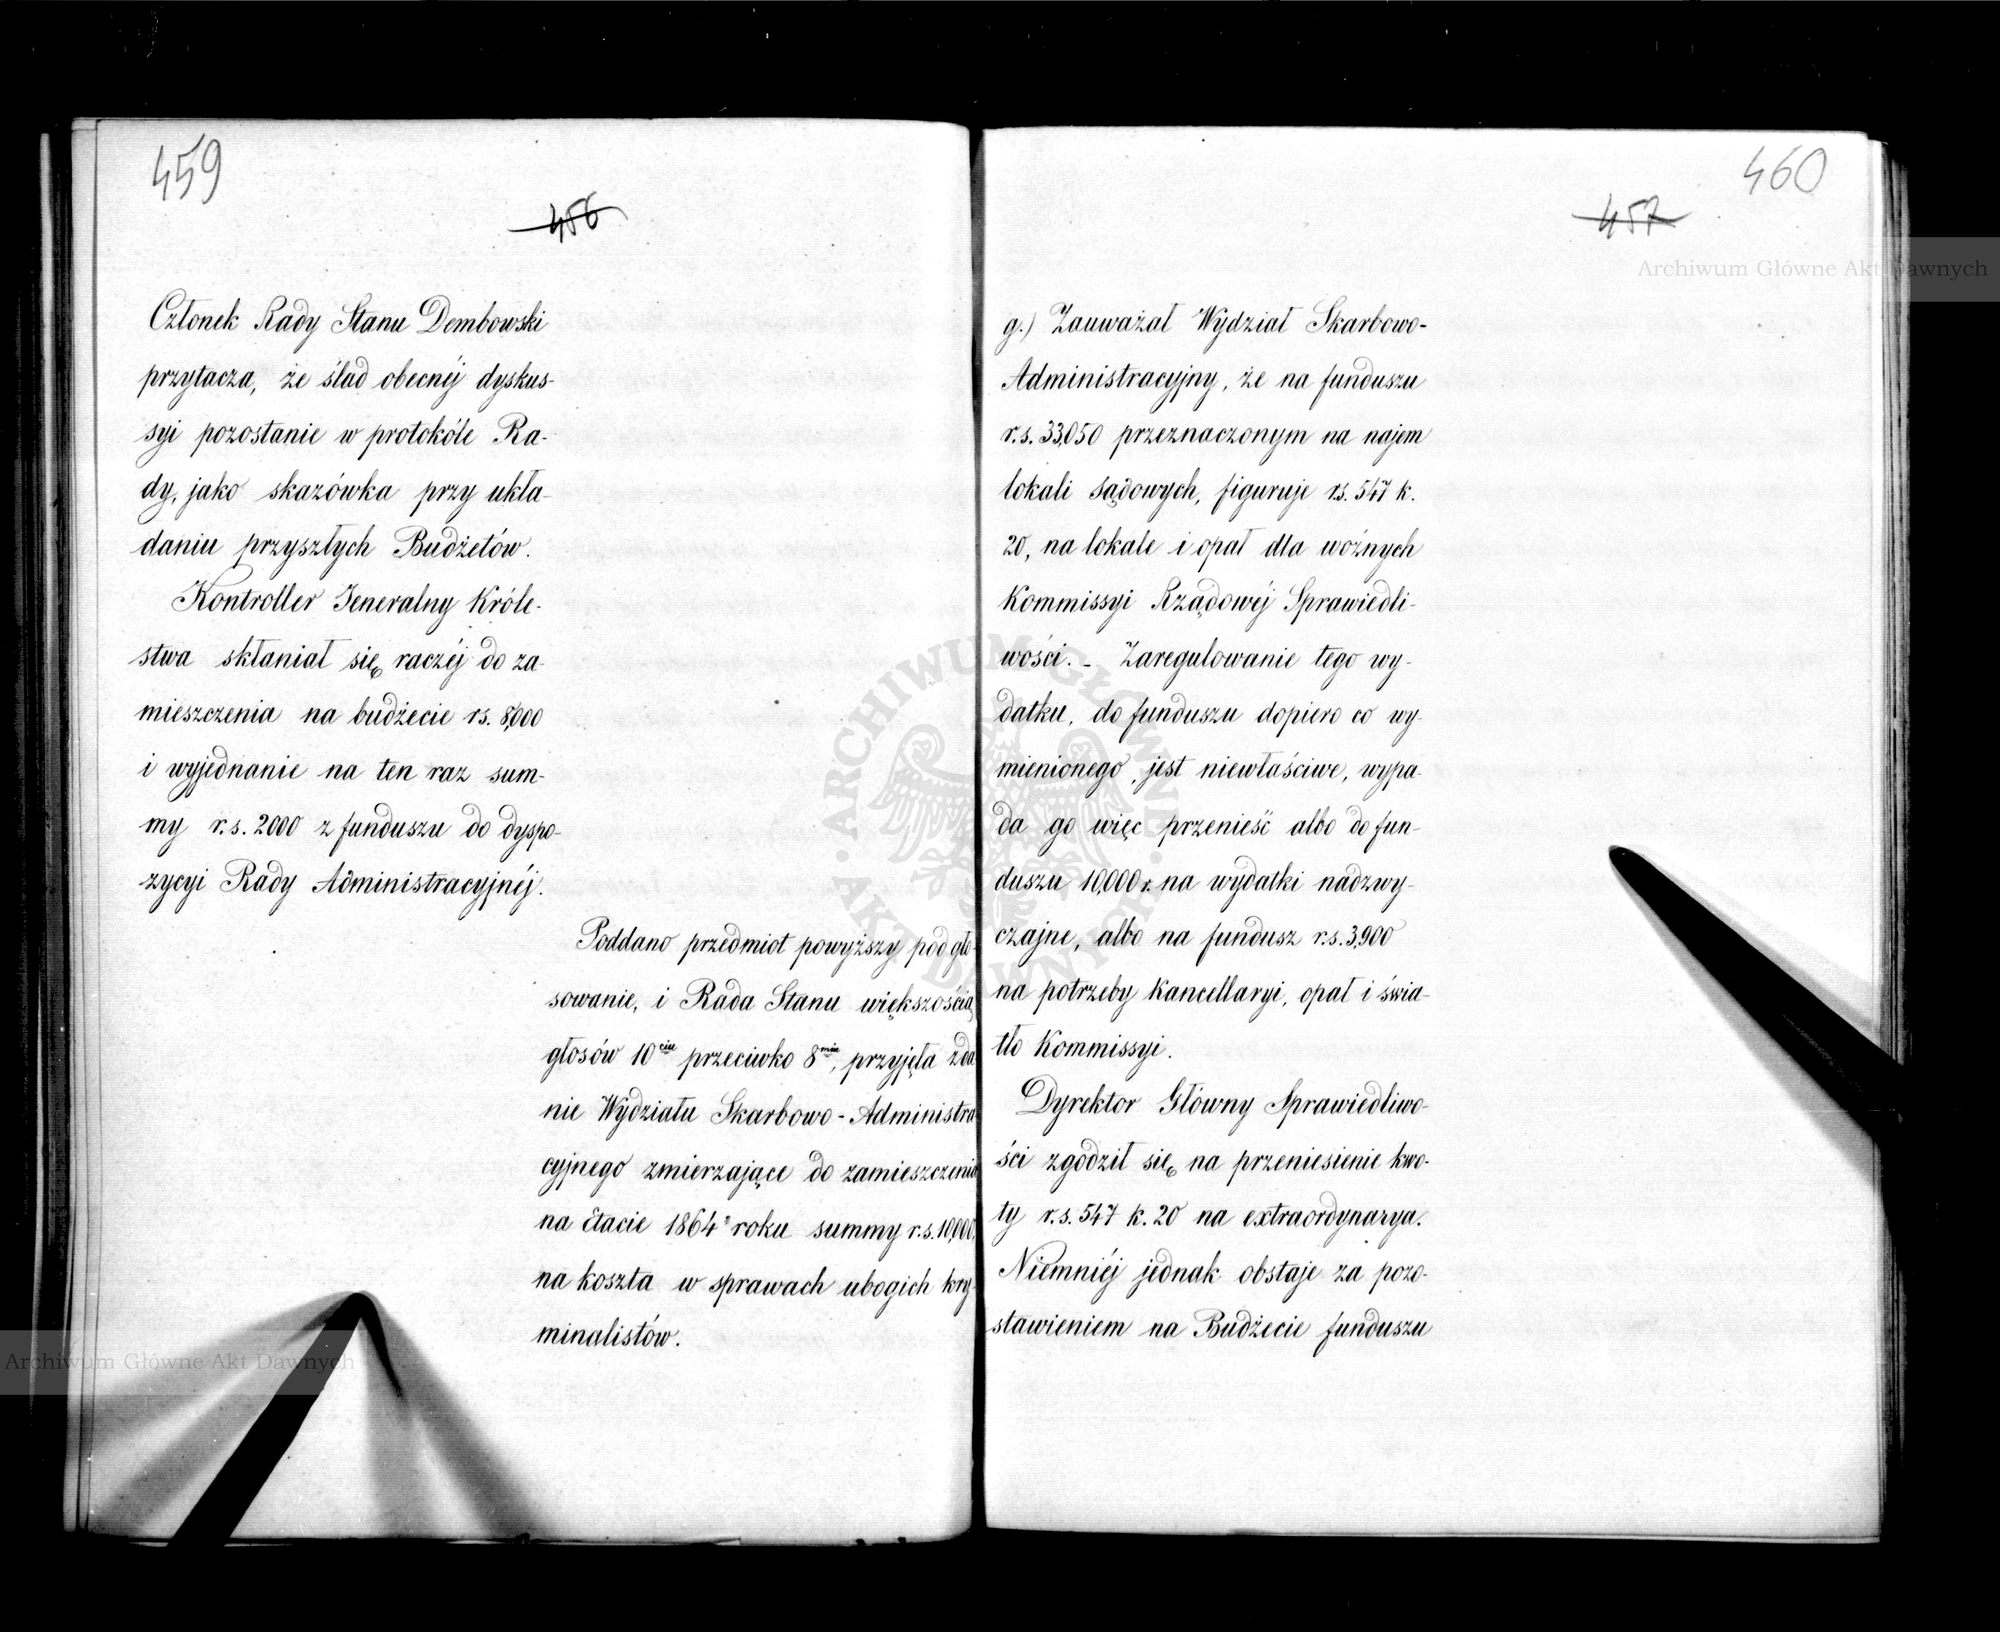 459
456
Członek Rady Stanu Dembowski
przytacza, że ślad obecnéj dyskus-
syi pozostanie w protokóle Ra-
dy, jako skazówka przy ukła-
daniu przyszłych Budżetów.
Kontroller Jeneralny Króle-
stwa skłaniał się raczéj do za-
mieszczenia na budżecie rs. 8,000
i wyjednanie na ten raz sum-
my r.s. 2000 z funduszu do dyspo-
zycyi Rady Administracyjnéj.
Poddano przedmiot powyższy pod gło-
sowanie, i Rada Stanu większością
głosów 10ciu przeciwko 8miu, przyjęła zda
nie Wydziału Skarbowo-Administra
cyjnego zmierzające do zamieszczenia
na Etacie 1864º roku summy r.s. 10,000,
na koszta w sprawach ubogich kry-
minalistów.
460
457
g.) Zauważał Wydział Skarbowo-
Administracyjny, że na funduszu
r.s. 33,050 przeznaczonym na najem
lokali sądowych, figuruje rs. 547 k.
20, na lokale i opał dla woźnych
Kommissyi Rządowéj Sprawiedli-
wości. - Zaregulowanie tego wy-
datku, do funduszu dopiero co wy-
mienionego, jest niewłaściwe, wypa-
da go więc przenieść albo do fun-
duszu 10,000 r. na wydatki nadzwy-
czajne, albo na fundusz r.s. 3,900
na potrzeby Kancellaryi, opał i świa-
tło Kommissyi.
Dyrektor Główny Sprawiedliwo-
ści zgodził się na przeniesienie kwo-
ty r.s. 547 k. 20 na extraordynarya.
Niemniéj jednak obstaje za pozo-
stawieniem na Budżecie funduszu
Archiwum Główne Akt Dawnych
Archiwum Główne Akt Dawnych
ARCHIWUM GŁÓWNE AKT DAWNYCH